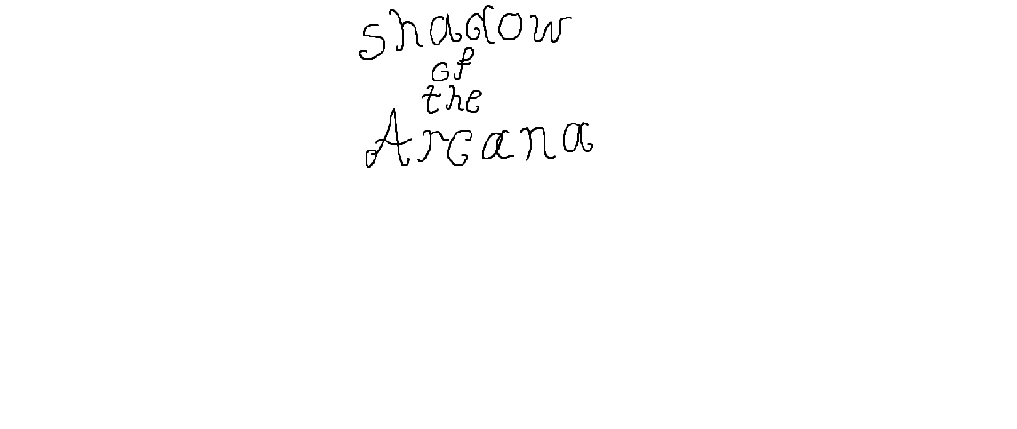 shadow
of
the
Arcana